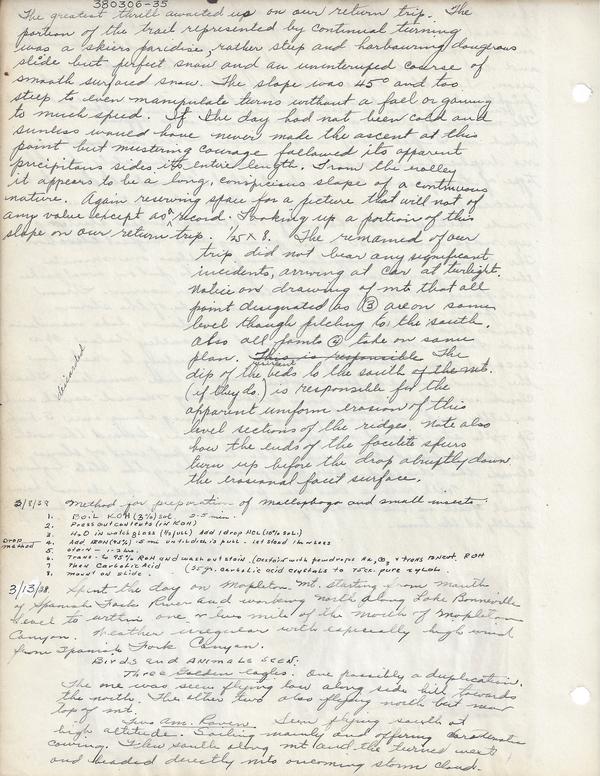 380306-35
The greatest thrill awaited us on our return trip. The
portion of the trail represented by continual turning
was a skiers paradise, rather steep and harbouring dangerous
slide but perfect snow and an uninteruped course of
smooth surfaced snow. The slope was 45° and too
steep to even manipulate turns without a fael or gaining
to much speed. If the day had not been cold and
sunless would have never made the ascent at this
point but mustering courage followed its apparent
precipitous sides its entire length. From the valley
it appears to be a long, conspicious slope of a continuous
nature. Again reserving space for a picture that will not of
any value except as a record. Looking up a portion of this
slope on our return trip. 1/25 X 8. The remained of our
trip did not bear any significant
incidents, arriving at car at twilight.
Notice on drawing of mts that all
point designated as 3 are on same
level though pitching to the south.
Also all points 4 take on same
plan. This is responsible The
dip of the beds to the south of the mt.
(if they do.) is responsible for the
apparent uniform erosion of this
level sections of the ridges. Note also
how the ends of the facilete spurs
turn up before the drop abruptly down
the erosional facet surface.
discarded
3/8/38 Method for preparation of mallophaga and small insects.
1. Boil KOH (3%) sol 2-5 min.
2. Press out contents (in KOH)
3. H2O in watch glass (1/2 full) add 1 drop HCL (10% sol.)
Drop method 4. Add ROH (95%) .5 ml until dish is full. let stand 1 hr or less
5. Stain - 1-2 hrs.
6. Trans. to 95% ROH and wash out stain
7. Then Carbolic Acid (25 gr. carbolic acid crystals to 75cc. pure xylol.
8. mount on slide.
3/13/38. Spent the day on Mapleton Mt. starting from Mouth
of Spanish Fork River and working north along Lake Bonneville
level to within one or two miles of the mouth of Mapleton
Canyon. Weather irregular with especially high wind
from Spanish Fork Canyon.
Birds and Animals Seen:
Three Golden eagles. One possibly a duplication.
The one was seen flying low along side hill towards
the north. The other two also flying north but near
top of mt.
Two Am. Raven. Seen flying south at
high altitude. Sailing mainly and offering characteristic
cawing. Flew south along mt and the turned west
and headed directly into oncoming storm cloud.